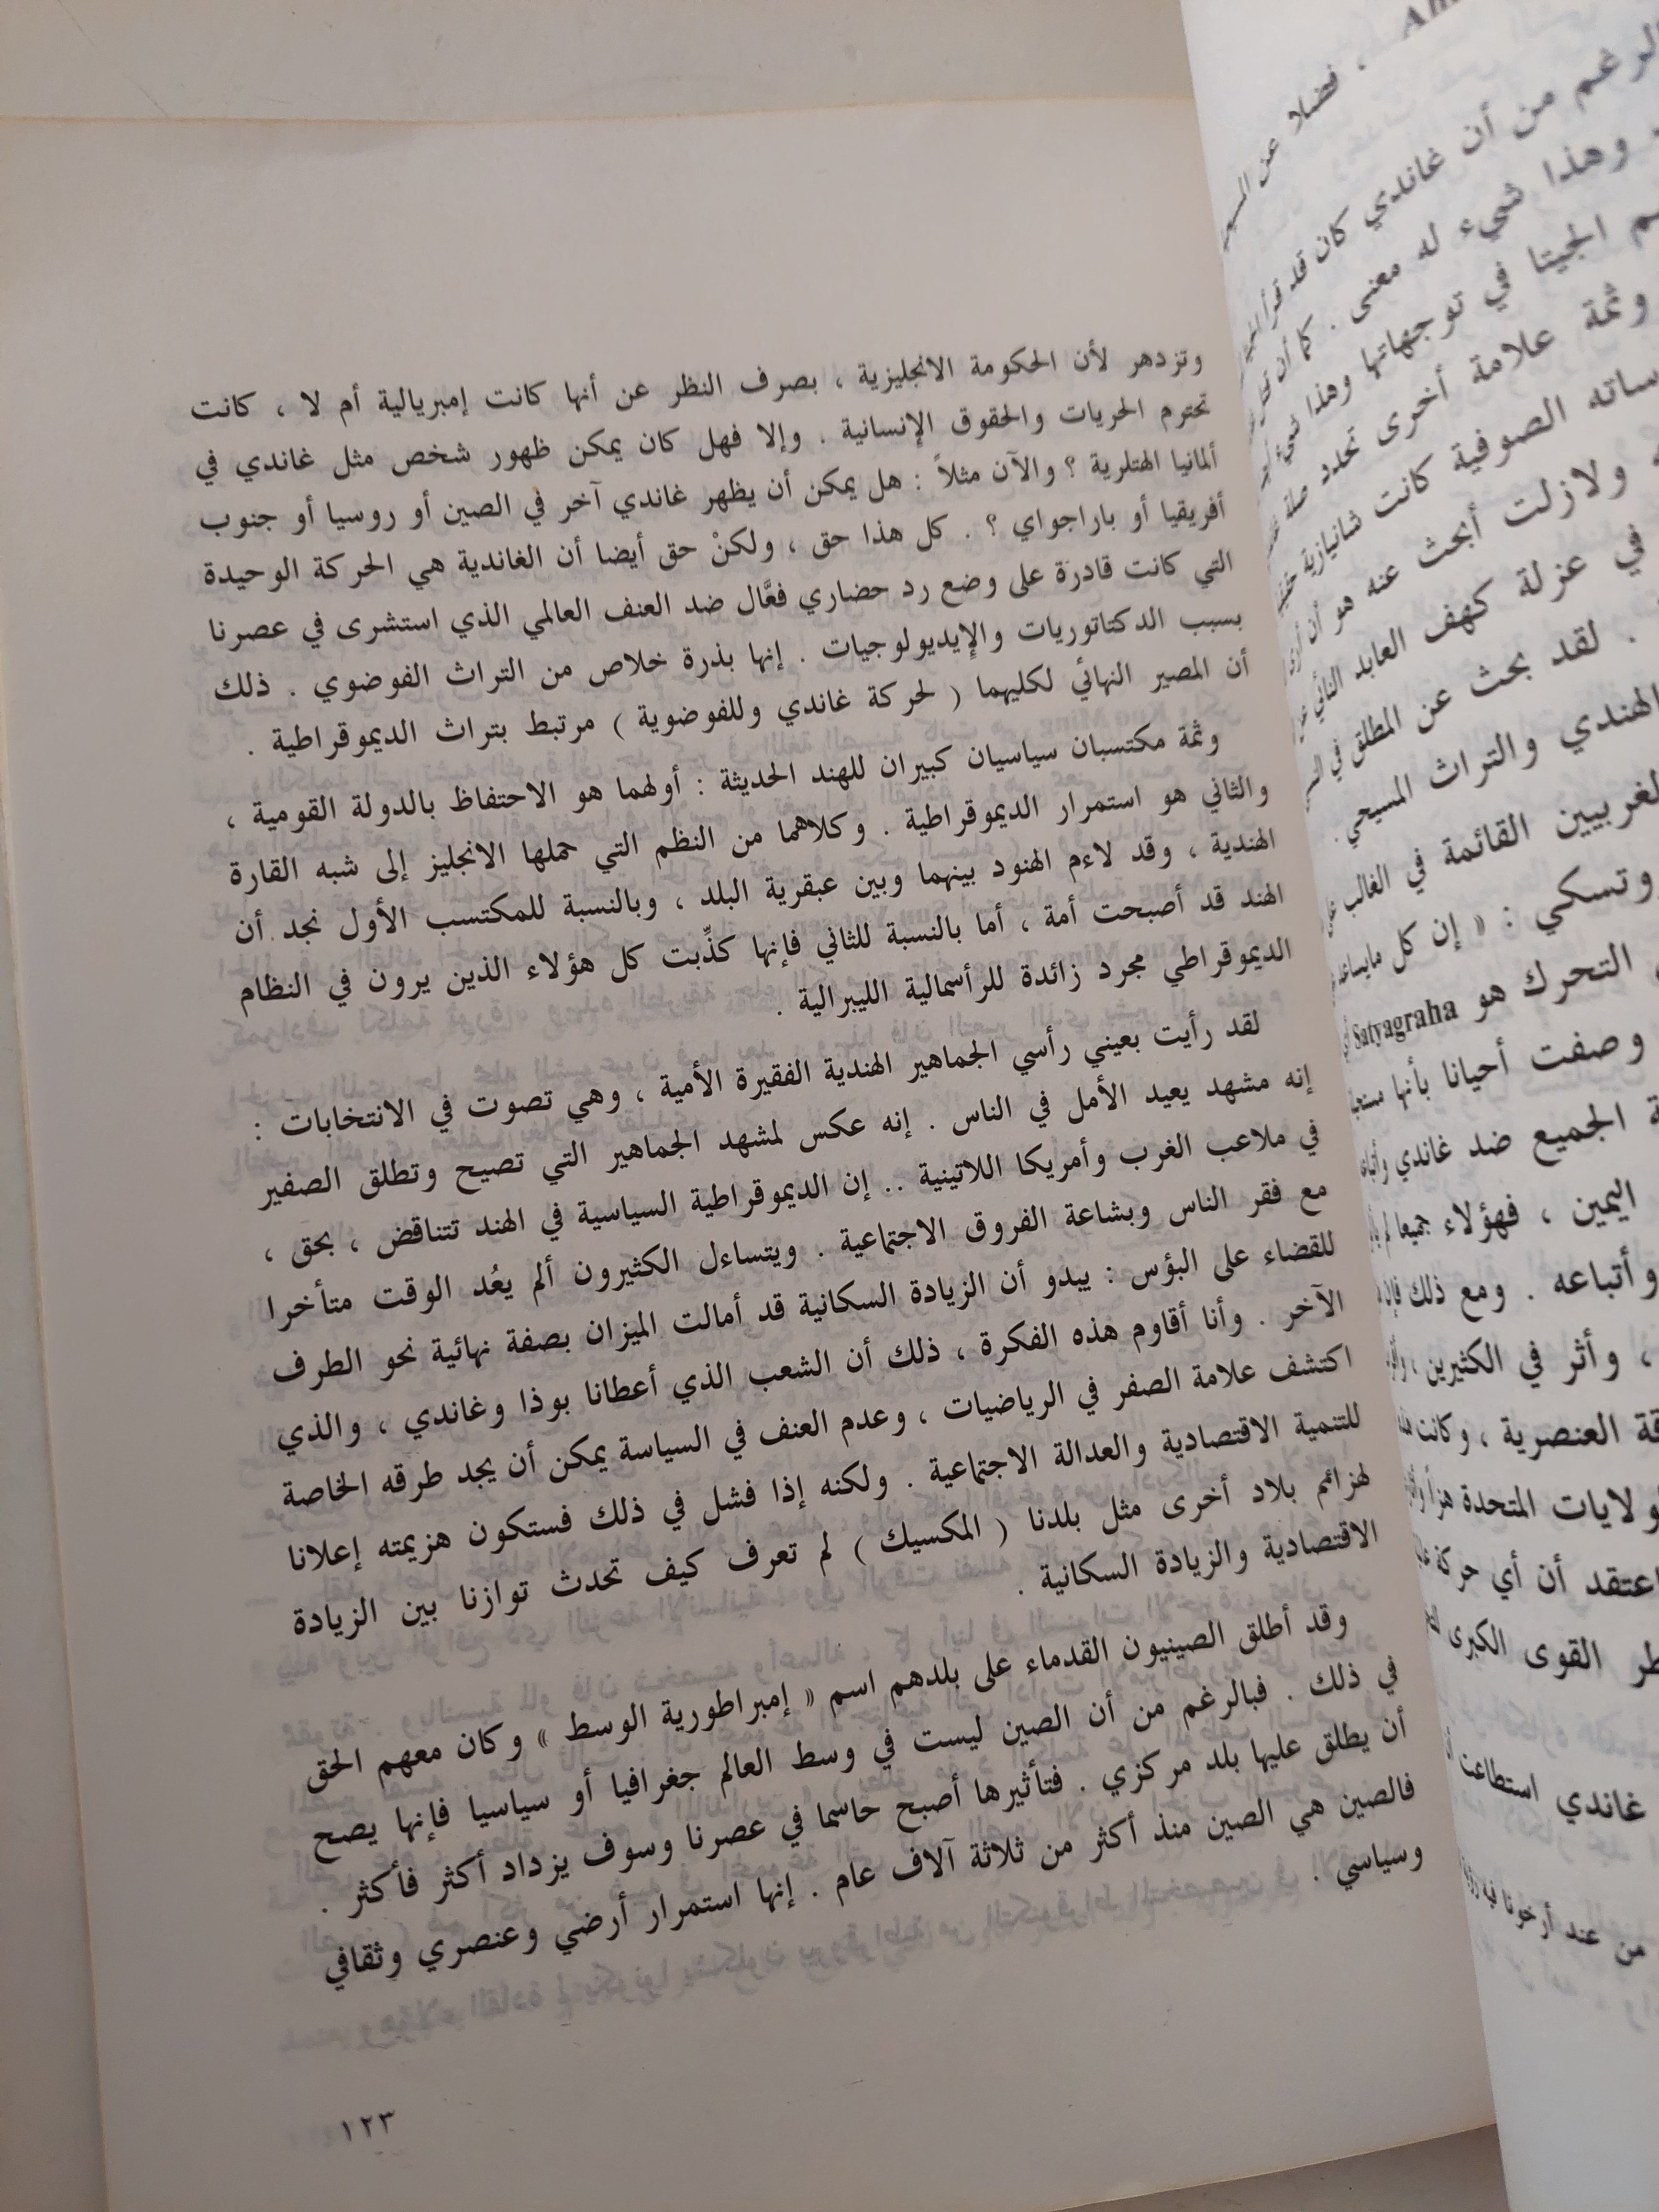 وتزدهر لأن الحكومة الانجليزية ، بصرف النظر عن أنها كانت إمبريالية أم لا ، كانت
تحترم الحريات والحقوق الإنسانية . وإلا فهل كان يمكن ظهور شخص مثل غاندي في
ألمانيا الهتلرية ؟ والآن مثلاً : هل يمكن أن يظهر غاندي آخر في الصين أو روسيا أو جنوب
أفريقيا أو باراجواي ؟ . كل هذا حق ، ولكنْ حق أيضا أن الغاندية هي الحركة الوحيدة
التي كانت قادرة على وضع رد حضاري فعَّال ضد العنف العالمي الذي استشرى في عصرنا
بسبب الدكتاتوريات والإيديولوجيات . إنها بذرة خلاص من التراث الفوضوي . ذلك
أن المصير النهائي لكليهما ( لحركة غاندي وللفوضوية ) مرتبط بتراث الديموقراطية .
وثمة مكتسبان سياسيان كبيران للهند الحديثة : أولهما هو الاحتفاظ بالدولة القومية ،
والثاني هو استمرار الديموقراطية . وكلاهما من النظم التي حملها الانجليز إلى شبه القارة
الهندية ، وقد لاءم الهنود بينهما وبين عبقرية البلد ، وبالنسبة للمكتسب الأول نجد أن
الهند قد أصبحت أمة ، أما بالنسبة للثاني فإنها كذِّبت كل هؤلاء الذين يرون في النظام
الديموقراطي مجرد زائدة للرأسمالية الليبرالية .
لقد رأيت بعيني رأسي الجماهير الهندية الفقيرة الأمية ، وهي تصوت في الانتخابات :
إنه مشهد يعيد الأمل في الناس . إنه عكس لمشهد الجماهير التي تصيح وتطلق الصفير
في ملاعب الغرب وأمريكا اللاتينية .. إن الديموقراطية السياسية في الهند تتناقض ، بحق ،
مع فقر الناس وبشاعة الفروق الاجتماعية . ويتساءل الكثيرون ألم يعُد الوقت متأخرا
للقضاء على البؤس : يبدو أن الزيادة السكانية قد أمالت الميزان بصفة نهائية نحو الطرف
الآخر . وأنا أقاوم هذه الفكرة ، ذلك أن الشعب الذي أعطانا بوذا وغاندي ، والذي
اكتشف علامة الصفر في الرياضيات ، وعدم العنف في السياسة يمكن أن يجد طرقه الخاصة
للتنمية الاقتصادية والعدالة الاجتماعية . ولكنه إذا فشل في ذلك فستكون هزيمته إعلانا
لهزائم بلاد أخرى مثل بلدنا ( المكسيك ) لم تعرف كيف تحدث توازنا بين الزيادة
الاقتصادية والزيادة السكانية .
وقد أطلق الصينيون القدماء على بلدهم اسم « إمبراطورية الوسط » وكان معهم الحق
في ذلك . فبالرغم من أن الصين ليست في وسط العالم جغرافيا أو سياسيا فإنها يصح
أن يطلق عليها بلد مركزي . فتأثيرها أصبح حاسما في عصرنا وسوف يزداد أكثر فأكثر .
فالصين هي الصين منذ أكثر من ثلاثة آلاف عام . إنها استمرار أرضي وعنصري وثقافي
وسياسي .
١٢٣
، فضلا عن
من أن غاندي كان قد قرأ
وهذا شيء له معنى . كما أن
الجيتا في توجهاتها وهذا
وثمة علامة أخرى تحدد صلة
الصوفية كانت
ولازلت أبحث عنه هو أن أرى
في عزلة كهف العابد
. لقد بحث عن المطلق في
الهندي والتراث المسيحي .
القائمة في الغالب
: « إن كل مايساعد
التحرك هو Satyagraha
وصفت أحيانا بأنها
الجميع ضد غاندي
اليمين ، فهؤلاء جميعا
وأتباعه . ومع ذلك
، وأثر في الكثيرين ،
العنصرية ، وكانت
المتحدة
أن أي حركة
القوى الكبرى
غاندي استطاعت
من عند أرخونا فيه